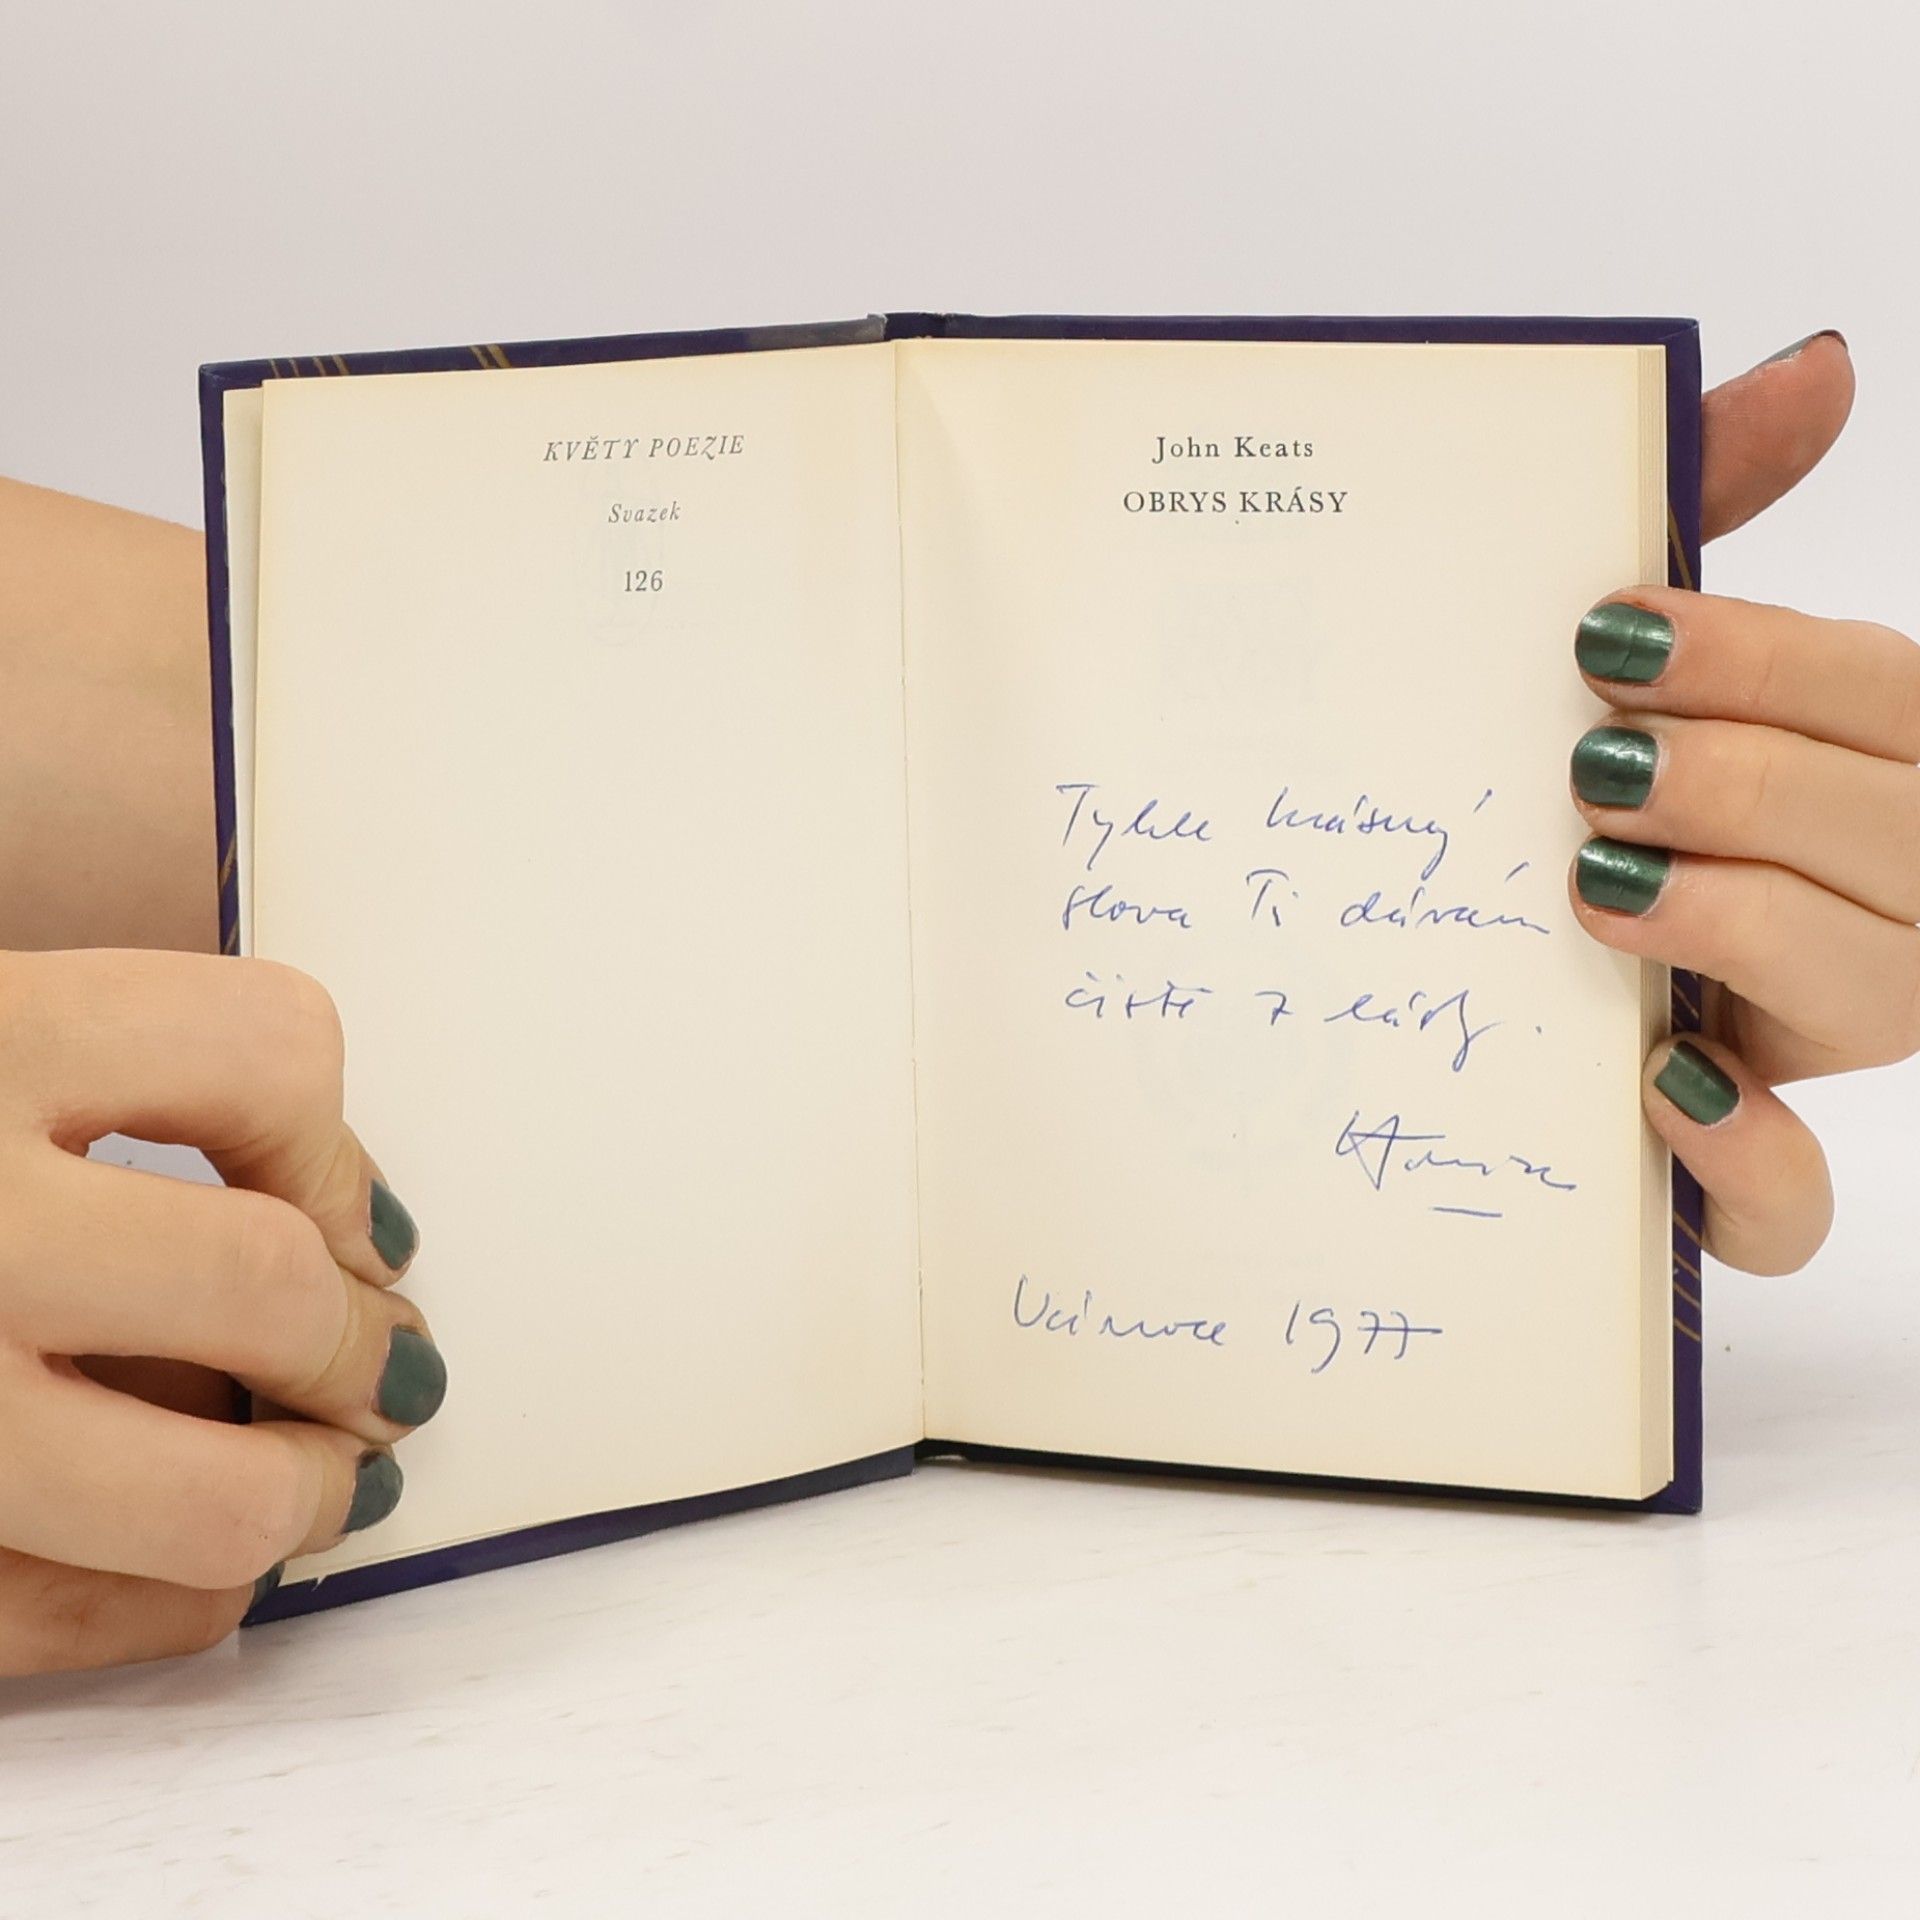 KVĚTY POEZIE
Svazek
126
John Keats
OBRYS KRÁSY
Tyhle krásný
slova Ti dávám
čistě z lásky.
Vánoce 1977